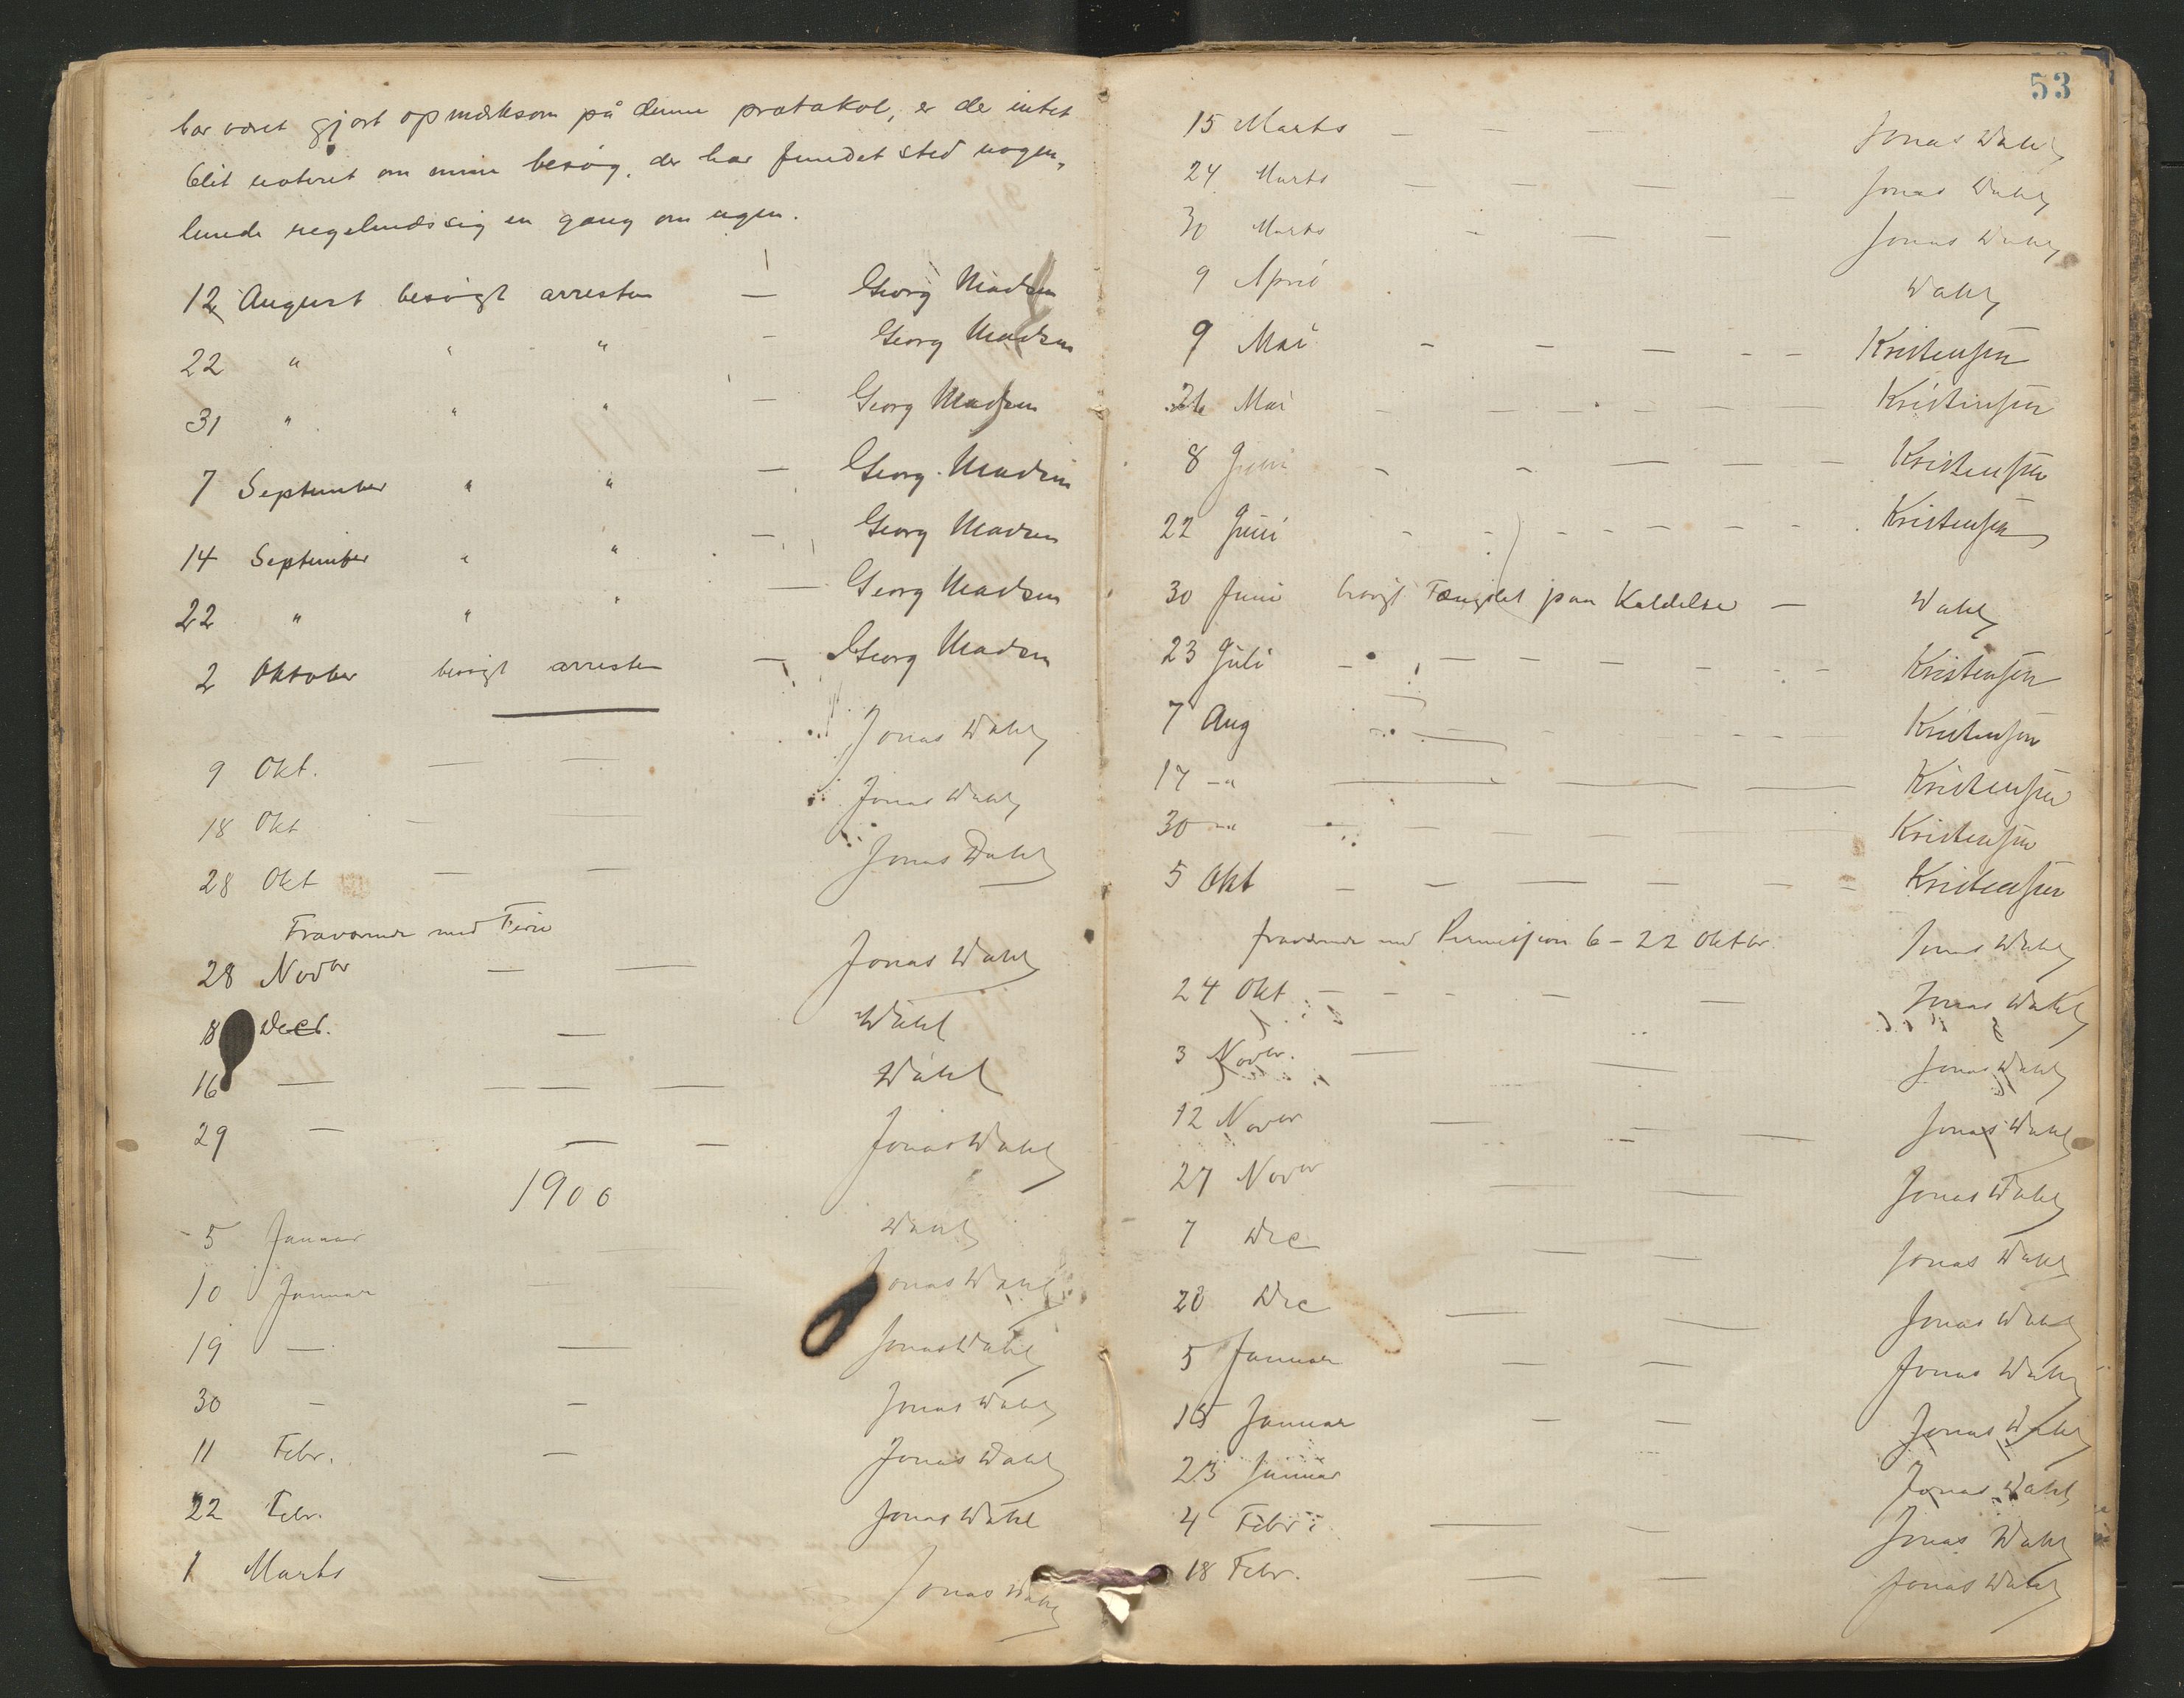 har været gjort opmærksom på denne protokol, er der intet
blit noteret om mine besøg, der har fundet sted nogen„
lunde regelmæssig en gang om ugen.
12 August besøgt arresten — Georg Madsen
22 " " " — Georg Madsen
31 " " " — Georg Madsen
7 September " " — Georg Madsen
14 September " " — Georg Madsen
22 " " " — Georg Madsen
2 Oktober besøgt arresten — Georg Madsen
9 Okt. — — Jonas Wahl
18 Okt — — Jonas Wahl
28 Okt — — Jonas Dahl
Fraværende med Ferie
28 Novbr — — Jonas Wahl
8 Decb. — Wahl
16 — — — — Wahl
29 — — — Jonas Wahl
1900
5 Januar — Wahl
10 Januar — — Jonas Wahl
19 — — Jonas Wahl
30 - - Jonas Wahl
11 Febr. — Jonas Wahl
22 Febr. Jonas Wahl
1 Marts — Jonas Wahl
53
15 Marts — — — Jonas Wahl
24 Marts — — — — Jonas Wahl
30 Marts - — — Jonas Wahl
9 April Wahl
9 Mai - - — - - Kristensen
Mai - — — — — — Kristensen
8 Juni - - — — — Kristensen
22 Juni - - - - - - - Kristensen
30 Juni besøgt Fængslet paa Kaldelse — Wahl
23 Juli - — — — - - - Kristensen
7 Aug — - - - - - Kristensen
17 -" — — — Kristensen
30 -" — — — — — Kristensen
5 Okt — — — — - - Kristensen
fraværende med Permission 6 - 22 Oktbr. Jonas Wahl
24 Okt — - - — — Jonas Wahl
3 Novbr. — — Jonas Wahl
12 Novbr — — — Jonas Wahl
27 Novbr — — Jonas Wahl
7 Dec — — Jonas Wahl
20 Dec — — Jonas Wahl
5 Januar — — Jonas Wahl
15 Januar — — Jonas Wahl
23 Januar Jonas Wahl
4 Febr. — — Jonas Wahl
18 Febr. — — Jonas Wahl